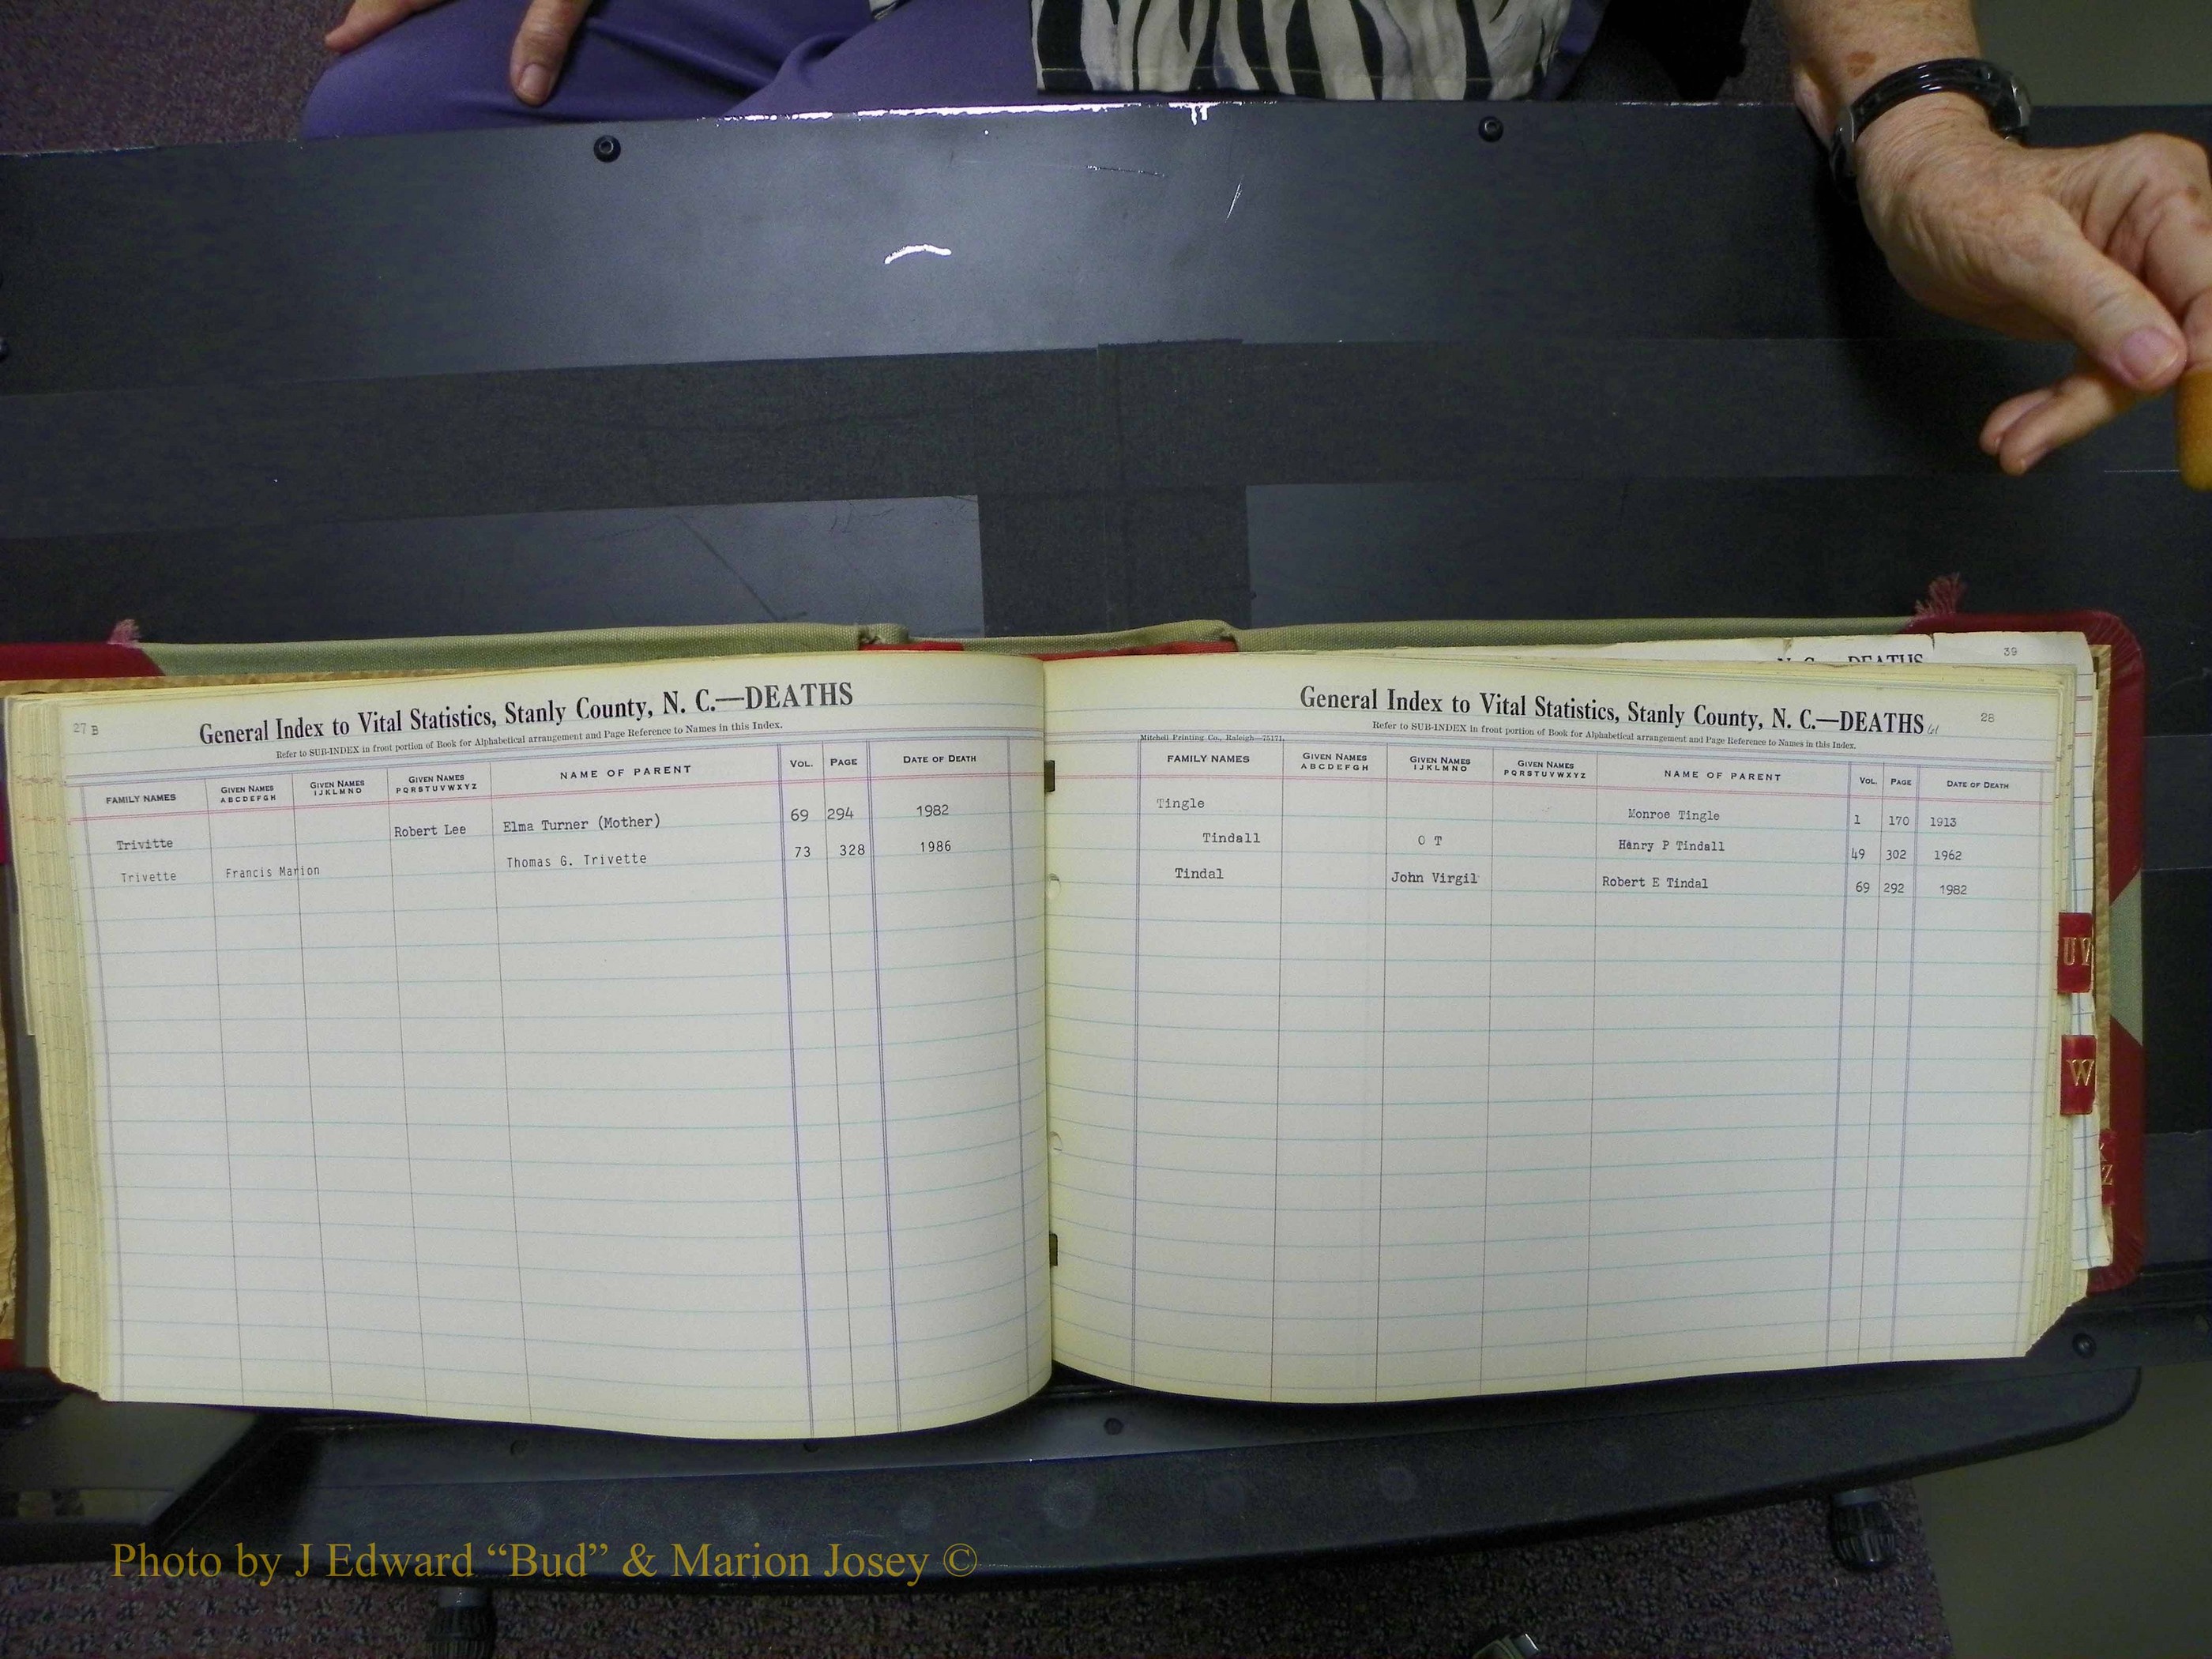 27 B
General Index to Vital Statistics, Stanly County, N. C.—DEATHS
Refer to SUB-INDEX in front portion of Book for Alphabetical arrangement and Page Reference to Names in this Index.
FAMILY NAMES GIVEN NAMES ABCDEFGH GIVEN NAMES IJKLMNO GIVEN NAMES PQRSTUVWXYZ NAME OF PARENT VOL. PAGE DATE OF DEATH
Trivitte Robert Lee Elma Turner (Mother) 69 294 1982
Trivette Francis Marion Thomas G. Trivette 73 328 1986
N. C.—DEATHS 39
General Index to Vital Statistics, Stanly County, N. C.—DEATHS 28
Refer to SUB-INDEX in front portion of Book for Alphabetical arrangement and Page Reference to Names in this Index.
Mitchell Printing Co., Raleigh—75171.
FAMILY NAMES GIVEN NAMES ABCDEFGH GIVEN NAMES IJKLMNO GIVEN NAMES PQRSTUVWXYZ NAME OF PARENT VOL. PAGE DATE OF DEATH
Tingle Monroe Tingle 1 170 1913
Tindall O T Henry P Tindall 49 302 1962
Tindal John Virgil Robert E Tindal 69 292 1982
UV
W
Z
Photo by J Edward “Bud” & Marion Josey ©